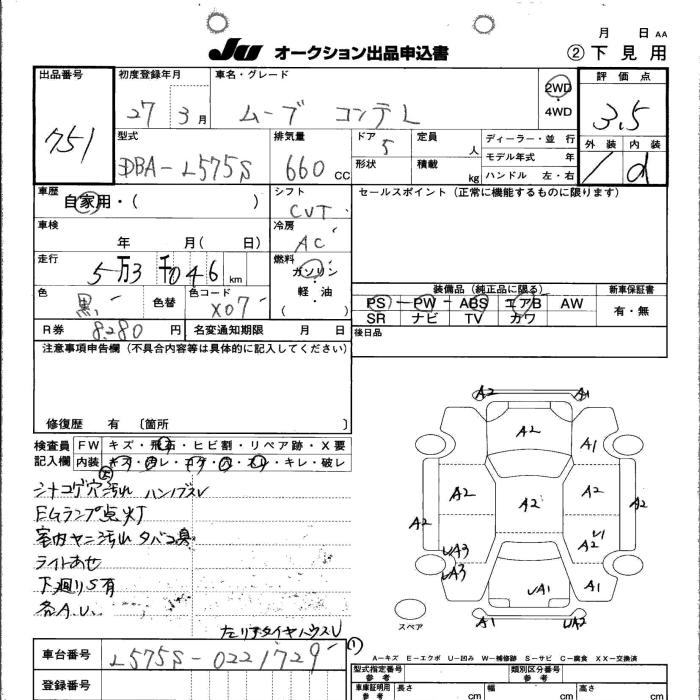 月 日 AA
JU オークション出品申込書 ②下見用
出品番号 751
初度登録年月 27 3月
車名・グレード ムーブ コンテ L
2WD
4WD
評価点 3.5
外装 内装
/ d
型式 DBA-L575S
排気量 660 CC
ドア 5
形状
定員 人
積載 kg
ディーラー・並行
モデル年式 年
ハンドル 左・右
車歴 自家用・( )
シフト CVT
セールスポイント(正常に機能するものに限ります)
車検 年 月( 日)
冷房 AC
走行 5万3千046 km
燃料 ガソリン・軽・油 ( )
色 黒
色替
色コード X07
装備品(純正品に限る)
PS PW ABS エアB AW
SR ナビ TV カワ
新車保証書
有・無
R券 8280 円
名変通知期限 月 日
後日品
注意事項申告欄(不具合内容等は具体的に記入してください)
修復歴 有 〔箇所 〕
検査員記入欄
FW キズ・飛石・ヒビ割・リペア跡・X要
内装 キズ・汚レ・コゲ・穴・スレ・キレ・破レ
シナコゲ穴汚れ ハンドスレ
EGランプ点灯
室内ヤニ汚れ タバコ臭
ライトあせ
下廻りS有
各A.U.
左リアタイヤハウスU
A2 A1
A2
A1
A2 A2 A2 A2 A2
A2
UA3
UA3
UA1 A1
A1 UA2
スペア
A-キズ E-エクボ U-凹み W-補修跡 S-サビ C-腐食 XX-交換済
車台番号 L575S-0221729
登録番号
型式指定番号 類別区分番号
車庫証明用参考 長さ cm 幅 cm 高さ cm